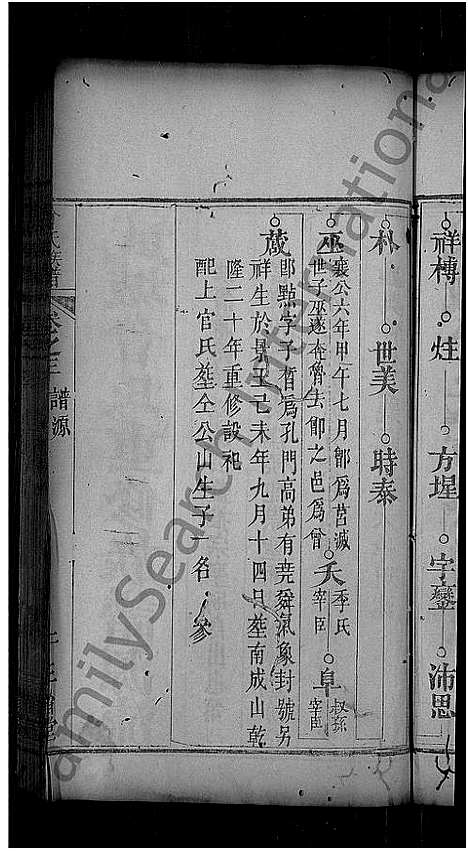 祥槫 炷 方墀 字鑾 沛思
朴 世美 時泰
巫 襄公六年甲午七月鄫爲莒滅
世子巫遂奔魯去鄫之邑爲曾
夭 季氏
宰臣
阜 叔孫
宰臣
蒧
即點字子晳爲孔門高弟有堯舜氣象封號另
祥生於景王己未年九月十四日塟南成山乾
隆二十年重修設祀
配上官氏塟仝公山生子一名參
氏族譜 卷之三 譜源
FamilySearch International